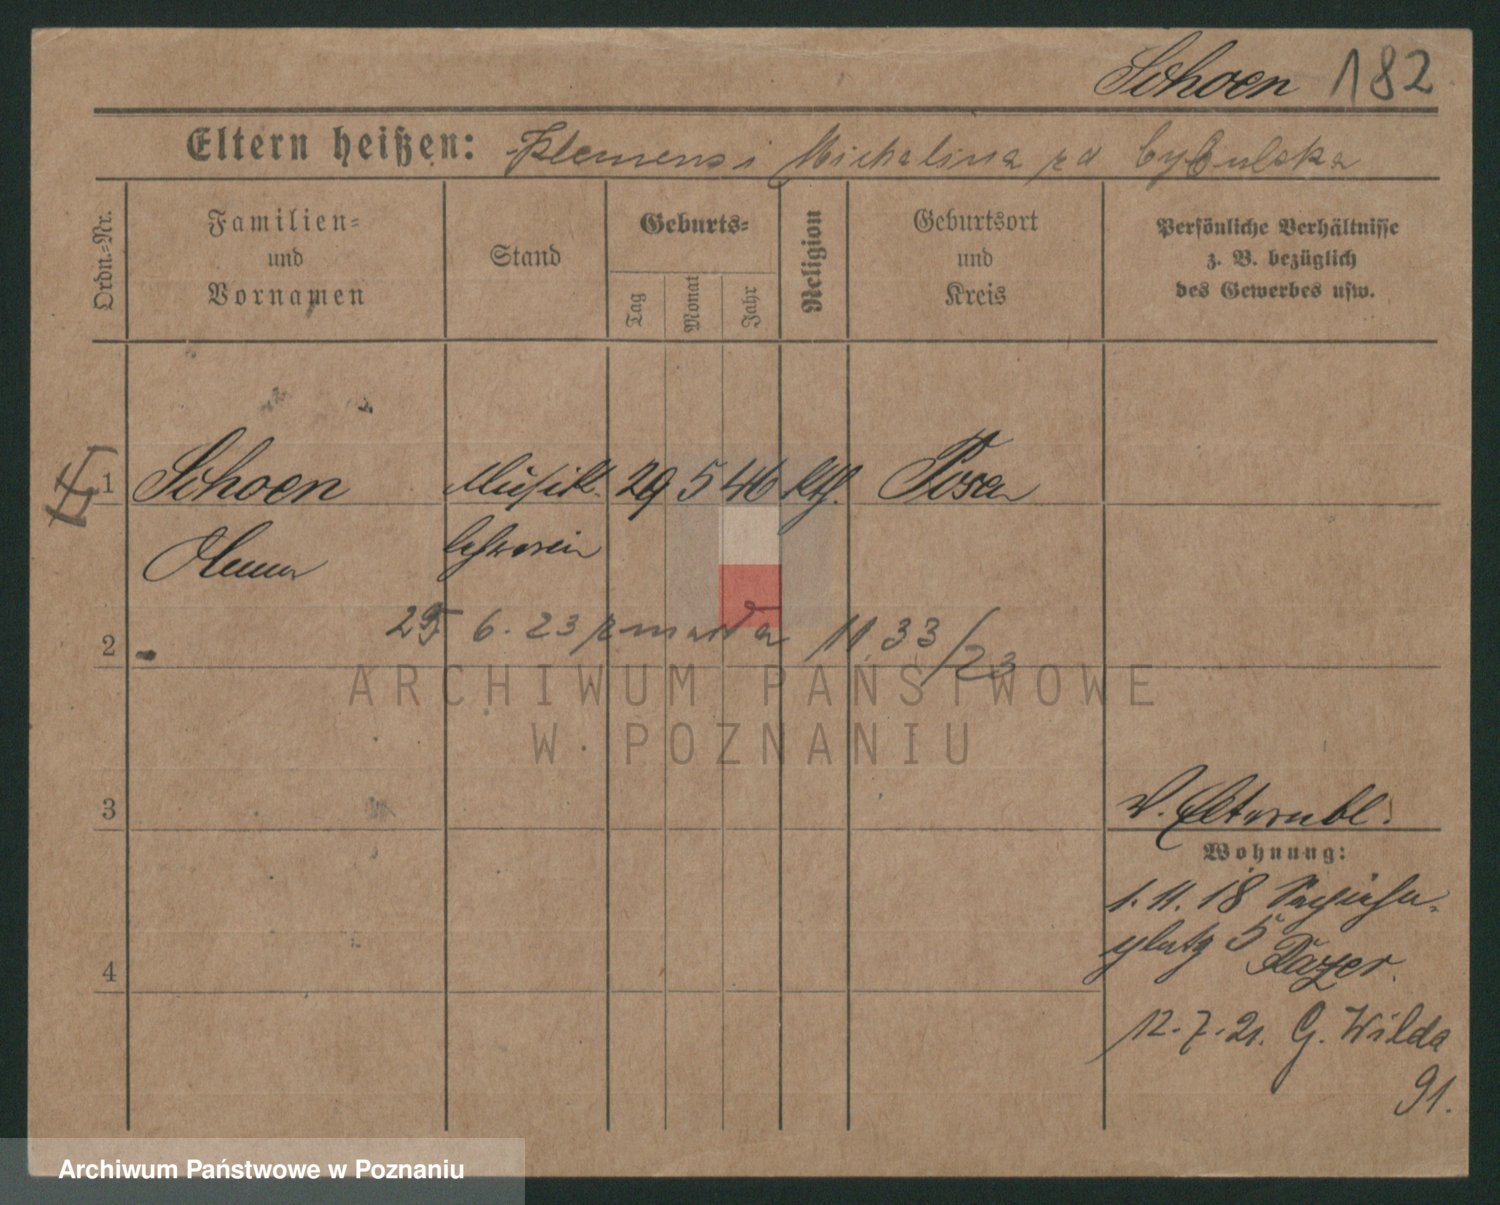 Schoen 182
Eltern heißen: Klemens i Michalina zd Cybulska
Ordn.=Nr.
Familien=
und
Vornamen
Stand
Geburts=
Tag
Monat
Jahr
Religion
Geburtsort
und
Kreis
Persönliche Verhältnisse
z. B. bezüglich
des Gewerbes usw.
1 Schoen Musik 29 5 46 Kth. Posen
lehrerin
25 6. 23 zmarła 1133/23
2
ARCHIWUM PAŃSTWOWE
W POZNANIU
3
v. Elternbl.
Wohnung:
1. 11. 18
platz 5
4
12. 7. 21. G. Wilda
91.
Archiwum Państwowe w Poznaniu